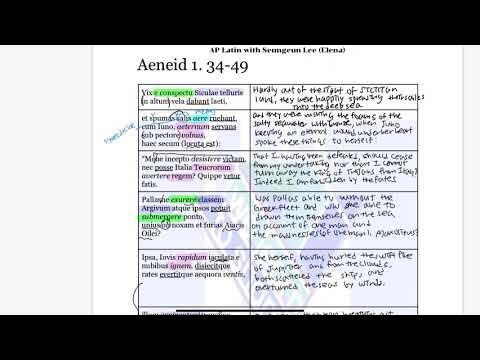 AP Latin with Seungeun Lee (Elena)
Aeneid 1. 34-49
Vix e conspectu Siculae telluris
in altum vela dabant laeti,
Hardly out of the sight of Sicilian
land, they were happily spreading their sails
into the deep sea
et spumas salis aere ruebant,
cum Iuno, aeternum servans
sub pectore vulnus,
haec secum (locuta est):
and they were rushing the foams of the
salty sea water with bronze, when Juno
keeping an eternal wound under her heart
spoke these things to herself:
"Mene incepto desistere victam,
nec posse Italia Teucrorum
avertere regem? Quippe vetor
fatis.
That I having been defeated, should cease
from my undertaking nor that I cannot
turn away the king of Trojans from Italy?
Indeed I am forbidden by the fates
Pallasne exurere classem
Argivum atque ipsos potuit
submergere ponto,
unius ob noxam et furias Aiacis
Oilei?
Was Pallas able to burn up the
Greek fleet and was able to
drown them themselves on the sea,
on account of one man and
the madness of
Ipsa, Iovis rapidum iaculata e
nubibus ignem, disiecitque
rates evertitque aequora ventis,
She herself, having hurled the swift fire
of Juppiter and from the clouds,
both scattered the ships and
overturned the seas by winds.